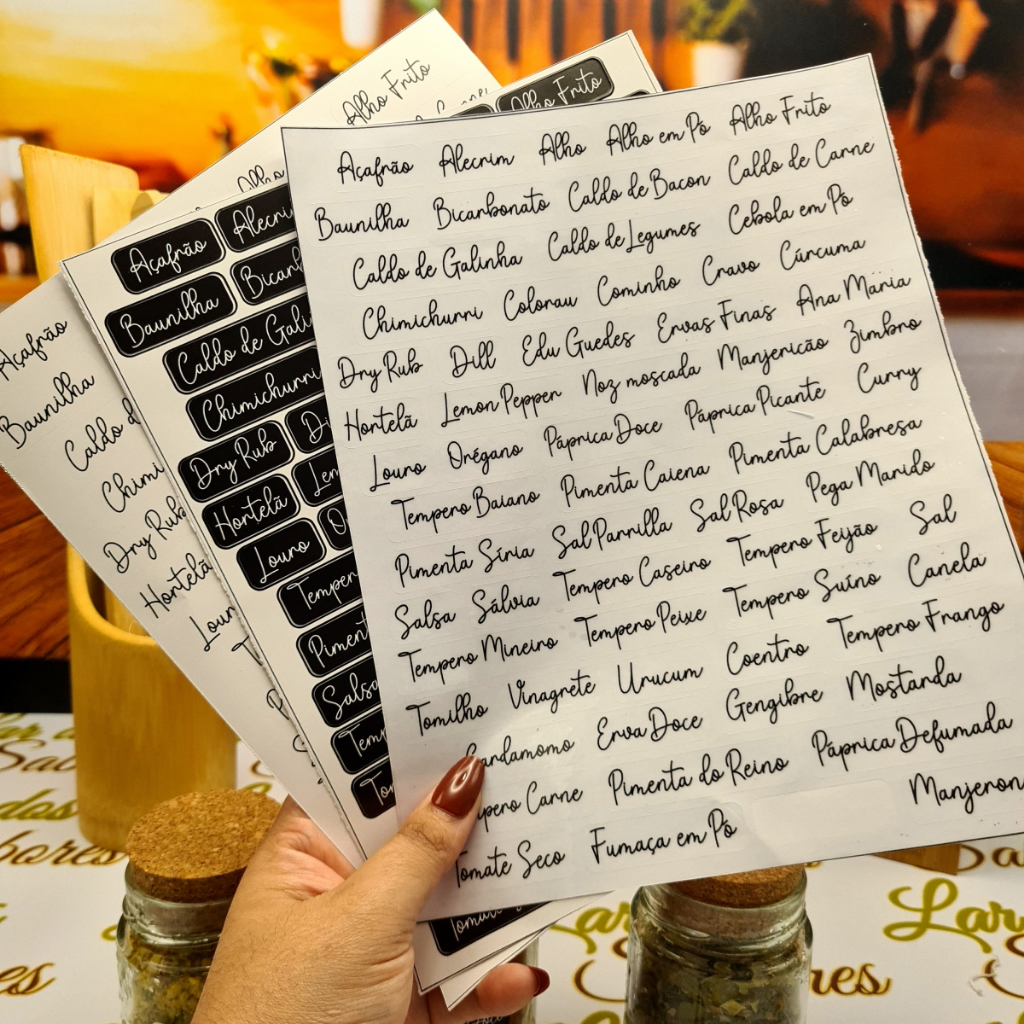 Açafrão Alecrim Alho Alho em Pó Alho Frito
Baunilha Bicarbonato Caldo de Bacon Caldo de Carne
Caldo de Galinha Caldo de Legumes Cebola em Pó
Chimichurri Colorau Cominho Cravo Cúrcuma
Dry Rub Dill Edu Guedes Ervas Finas Ana Maria
Hortelã Lemon Pepper Noz moscada Manjericão Zimbro
Louro Orégano Páprica Doce Páprica Picante Curry
Tempero Baiano Pimenta Caiena Pimenta Calabresa
Pimenta Síria Sal Parrilla Sal Rosa Pega Marido
Salsa Sálvia Tempero Caseiro Tempero Feijão Sal
Tempero Mineiro Tempero Peixe Tempero Suíno Canela
Tomilho Vinagrete Urucum Coentro Tempero Frango
Cardamomo Erva Doce Gengibre Mostarda
pero Carne Pimenta do Reino Páprica Defumada
Tomate Seco Fumaça em Pó Manjeron
Alho Frito
Açafrão Alecri
Baunilha Bicarb
Caldo de Gali
Chimichurri
Dry Rub Di
Hortelã Lem
Louro O
Temper
Piment
Salsa
Tem
To
Alho Frito
Alho
Açafrão
Baunilha
Caldo d
Chim
Dry Rub
Hortelã
Lour